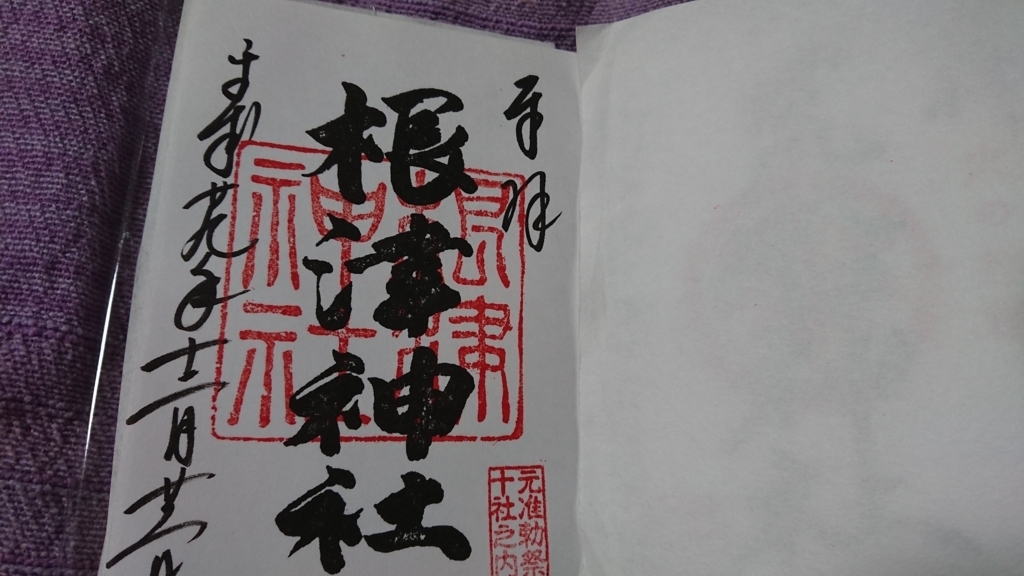 奉拝
根津神社
根津神社
元准勅祭
十社之内
平成廿九年十二月廿二日